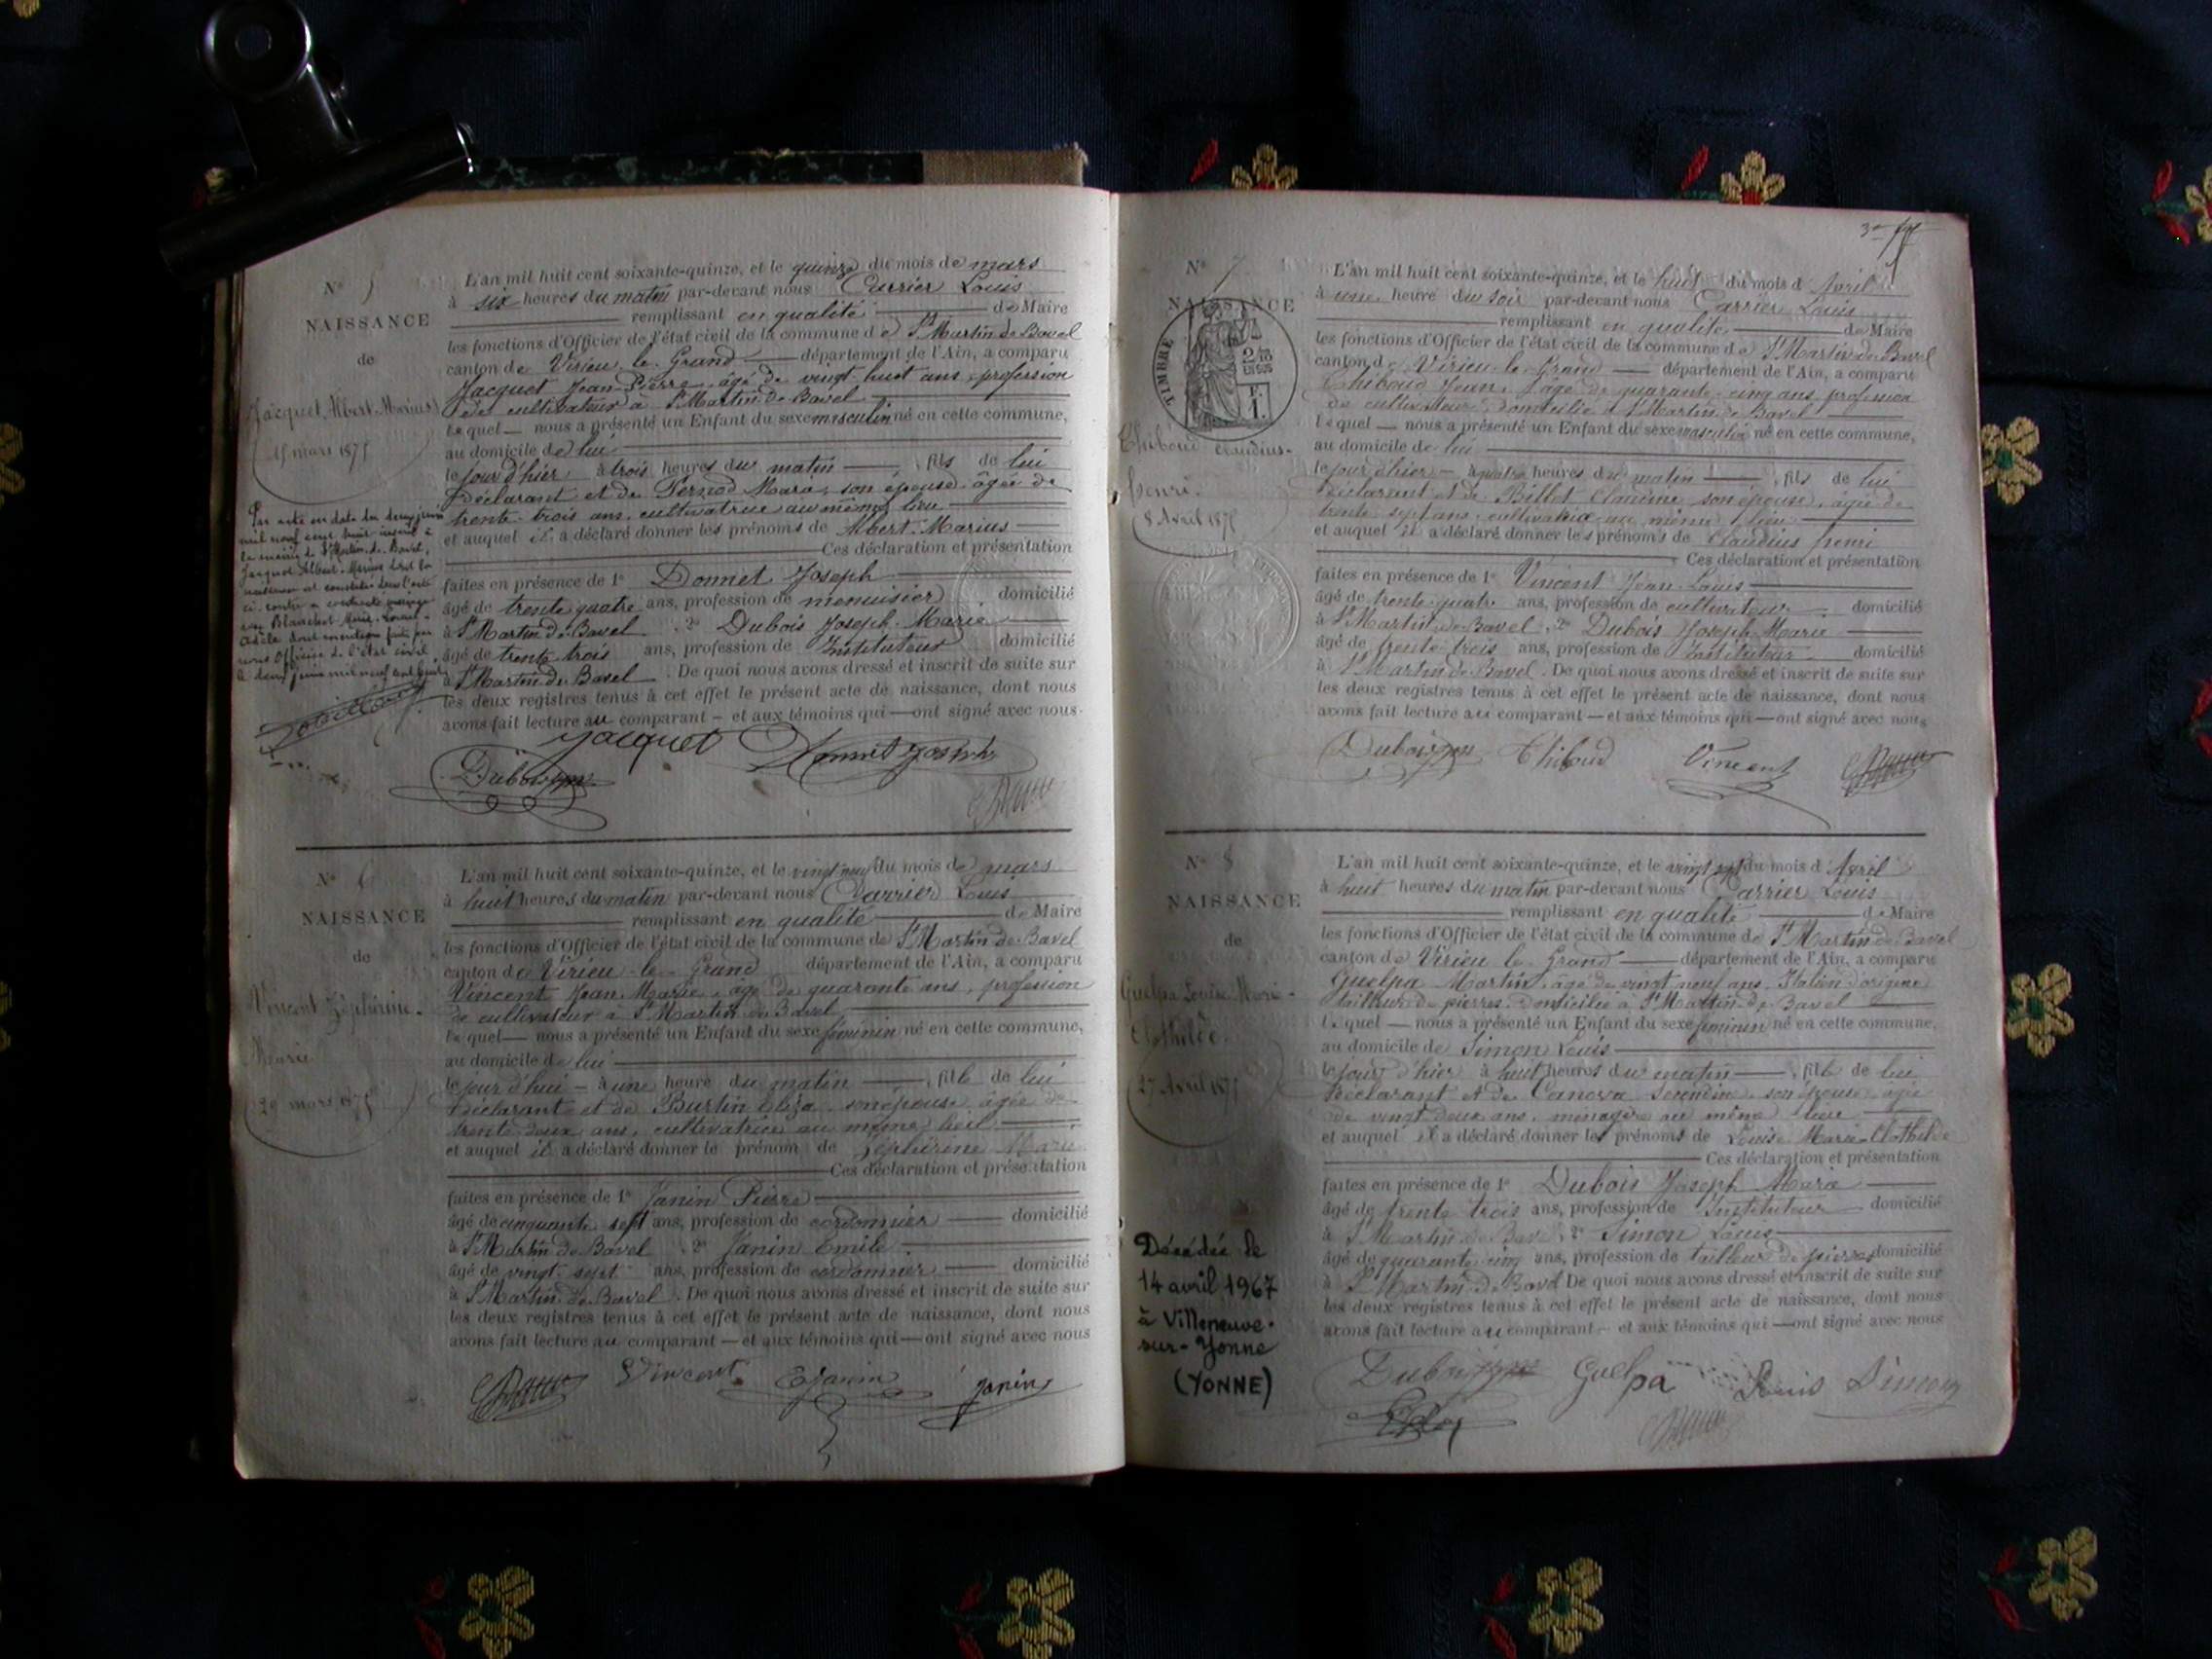 N° 5
NAISSANCE
de
Jacquet Albert-Marius
15 mars 1875
Par acte en date du deux juin
mil neuf cent huit inscrit à
la mairie de St Martin-de-Bavel,
Jacquet Albert-Marius dont la
naissance est constatée dans l'acte
ci-contre a contracté mariage
avec Blanchet Marie-Louise-
Adèle dont mention faite par
nous Officier de l'état civil
L'an mil huit cent soixante-quinze, et le quinze du mois de mars
à six heures du matin par-devant nous Carrier Louis
remplissant en qualité de Maire
les fonctions d'Officier de l'état civil de la commune de St Martin de Bavel
canton de Virieu le Grand département de l'Ain, a comparu
Jacquet Jean-Pierre, âgé de vingt-huit ans, profession
de cultivateur à St Martin-de-Bavel
lequel nous a présenté un Enfant du sexe masculin né en cette commune,
au domicile de lui
le jour d'hier à trois heures du matin, fils de lui
déclarant et de Pernod Marie, son épouse, âgée de
trente-trois ans, cultivatrice au même lieu
et auquel il a déclaré donner les prénoms de Albert-Marius
Ces déclaration et présentation
faites en présence de 1° Donnet Joseph
âgé de trente quatre ans, profession de menuisier domicilié
à St Martin de Bavel, 2° Dubois Joseph-Marie
âgé de trente trois ans, profession de Instituteur domicilié
à St Martin de Bavel. De quoi nous avons dressé et inscrit de suite sur
les deux registres tenus à cet effet le présent acte de naissance, dont nous
avons fait lecture au comparant – et aux témoins qui — ont signé avec nous.
Jacquet Donnet Joseph
Dubois
N° 6
NAISSANCE
de
Vincent Zéphirine-
Marie
29 mars 1875
L'an mil huit cent soixante-quinze, et le vingt neuf du mois de mars
à huit heures du matin par-devant nous Carrier Louis
remplissant en qualité de Maire
les fonctions d'Officier de l'état civil de la commune de St Martin de Bavel
canton de Virieu le Grand département de l'Ain, a comparu
Vincent Jean-Marie, âgé de quarante ans, profession
de cultivateur à St Martin de Bavel
lequel — nous a présenté un Enfant du sexe féminin né en cette commune,
au domicile de lui
le jour d'hui – à une heure du matin, fille de lui
déclarant et de Burtin Eliza, son épouse, âgée de
trente-deux ans, cultivatrice au même lieu
et auquel il a déclaré donner le prénom de Zéphirine Marie
Ces déclaration et présentation
faites en présence de 1° Janin Pierre
âgé de cinquante sept ans, profession de cordonnier domicilié
à St Martin de Bavel, 2° Janin Emile
âgé de vingt-sept ans, profession de cordonnier domicilié
à St Martin de Bavel. De quoi nous avons dressé et inscrit de suite sur
les deux registres tenus à cet effet le présent acte de naissance, dont nous
avons fait lecture au comparant — et aux témoins qui — ont signé avec nous
Vincent E Janin Janin
N° 7
NAISSANCE
TIMBRE
Thiboud Claudius-
henri
8 Avril 1875
L'an mil huit cent soixante-quinze, et le huit du mois d'Avril
à une heure du soir par-devant nous Carrier Louis
remplissant en qualité de Maire
les fonctions d'Officier de l'état civil de la commune de St Martin de Bavel
canton de Virieu-le-Grand département de l'Ain, a comparu
Thiboud Jean, âgé de quarante-cinq ans, profession
de cultivateur domicilié à St Martin de Bavel
lequel — nous a présenté un Enfant du sexe masculin né en cette commune,
au domicile de lui
le jour d'hier – à quatre heures du matin, fils de lui
déclarant et de Billet Claudine son épouse, âgée de
trente sept ans, cultivatrice au même lieu
et auquel il a déclaré donner les prénoms de Claudius henri
Ces déclaration et présentation
faites en présence de 1° Vincent Jean-Louis
âgé de trente-quatre ans, profession de cultivateur domicilié
à St Martin de Bavel, 2° Dubois Joseph-Marie
âgé de trente-trois ans, profession de Instituteur domicilié
à St Martin de Bavel. De quoi nous avons dressé et inscrit de suite sur
les deux registres tenus à cet effet le présent acte de naissance, dont nous
avons fait lecture au comparant — et aux témoins qui — ont signé avec nous
Dubois Thiboud Vincent
N° 8
NAISSANCE
de
Guelpa Louise Marie-
Clothilde
27 Avril 1875
Décédée le
14 avril 1967
à Villeneuve-
sur-Yonne
(YONNE)
L'an mil huit cent soixante-quinze, et le vingt sept du mois d'Avril
à huit heures du matin par-devant nous Carrier Louis
remplissant en qualité de Maire
les fonctions d'Officier de l'état civil de la commune de St Martin de Bavel
canton de Virieu le Grand département de l'Ain, a comparu
Guelpa Martin, âgé de vingt neuf ans, Italien d'origine
tailleur de pierres, domicilié à St Martin de Bavel
lequel — nous a présenté un Enfant du sexe féminin né en cette commune,
au domicile de Simon Louis
le jour d'hier à huit heures du matin, fille de lui
déclarant et de Canova son épouse âgée
de vingt deux ans, ménagère au même lieu
et auquel il a déclaré donner les prénoms de Louise Marie-Clothilde
Ces déclaration et présentation
faites en présence de 1° Dubois Joseph Marie
âgé de trente trois ans, profession de Instituteur domicilié
à St Martin de Bavel, 2° Simon Louis
âgé de quarante cinq ans, profession de tailleur de pierres domicilié
à St Martin de Bavel De quoi nous avons dressé et inscrit de suite sur
les deux registres tenus à cet effet le présent acte de naissance, dont nous
avons fait lecture au comparant – et aux témoins qui — ont signé avec nous
Dubois Guelpa Louis Simon